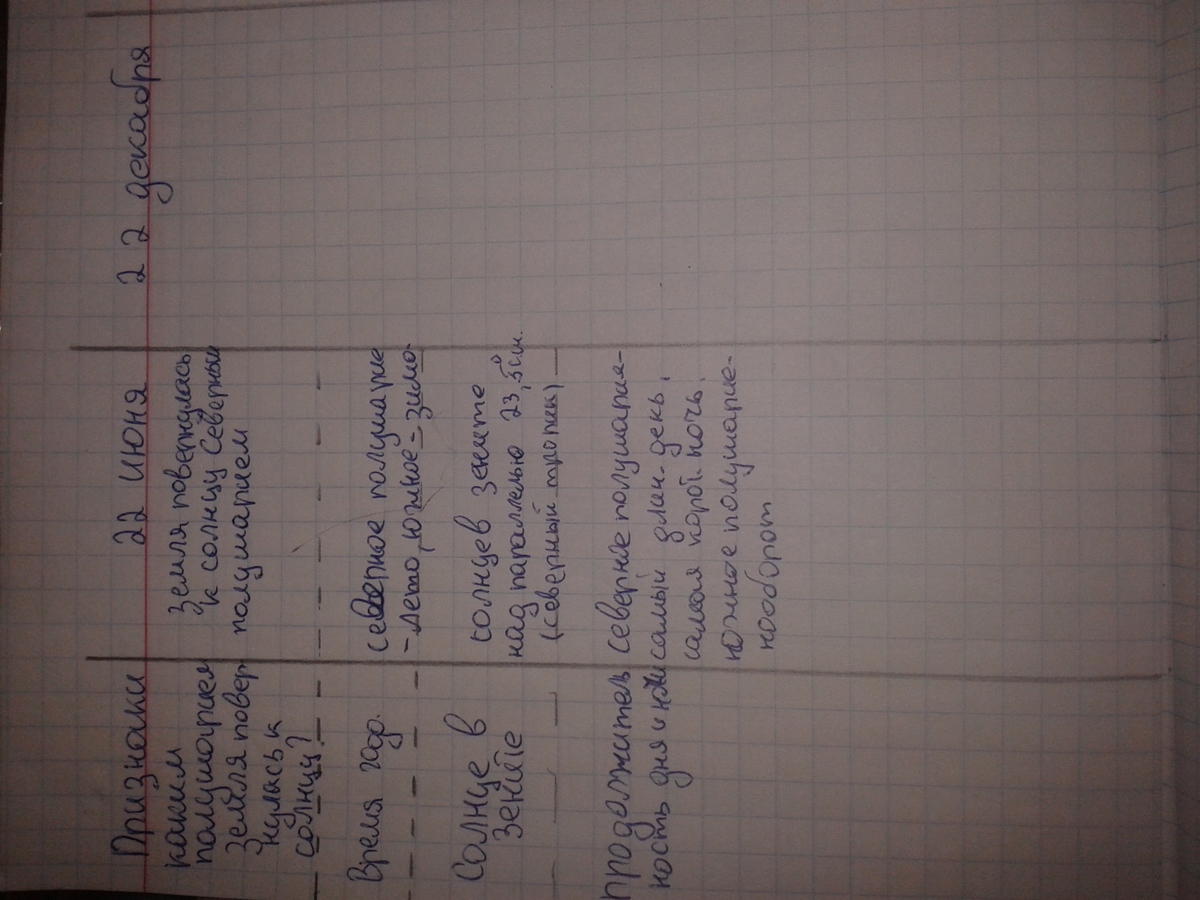 Признаки
22 июня
22 декабря
каким
полушарием
Земля повер
нулась к
солнцу?
Земля повернулась
к солнцу Северным
полушарием
Время год.
северное полушарие
- лето, южное - зима.
Солнце в
Зените
солнце в зените
над параллелью 23,5° с.ш.
(северный тропик)
продолжитель
ность дня и ночи
северное полушария-
самый длин. день,
самая корот. ночь,
южное полушарие-
наоборот